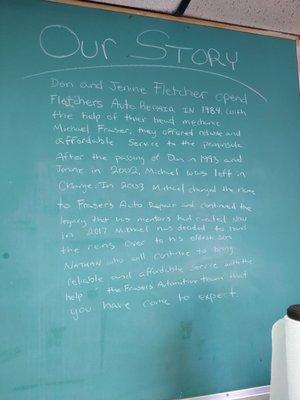 Our Story
Don and Jennie Fletcher opend
Fletchers Auto Repair in 1984. with
the help of their head mechanic
Michael Fraser, they offered reliable and
affordable service to the peninsula
After the passing of Don in 1993 and
Jennie in 2002, Michael was left in
Change. In 2003 Michael changed the name
to Frasers Auto Repair and continued the
legacy that his mentors had created. Now
in 2017 Michael has decided to hand
the reins over to his eldest son
Nathan who will continue to bring
reliable and affordable service with the
help the Frasers Automotive team that
you have come to expect.